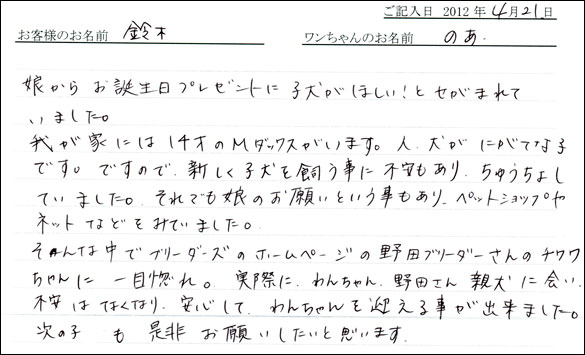 ご記入日 2012年4月21日
お客様のお名前 鈴木 ワンちゃんのお名前 のあ.
娘から お誕生日プレゼントに 子犬がほしい!と せがまれて
いました。
我が家には14才のMダックスがいます。人、犬が にがてな子
です。ですので、新しく子犬を飼う事に 不安もあり、ちゅうちょし
ていました。それでも娘のお願いという事もあり、ペットショップや
ネットなどをみていました。
そんな中でブリーダーズのホームページの野田ブリーダーさんのチワワ
ちゃんに 一目惚れ。 実際に、わんちゃん、野田さん 親犬に会い、
不安はなくなり、安心して、わんちゃんを迎える事が出来ました。
次の子 も 是非 お願いしたいと思います.